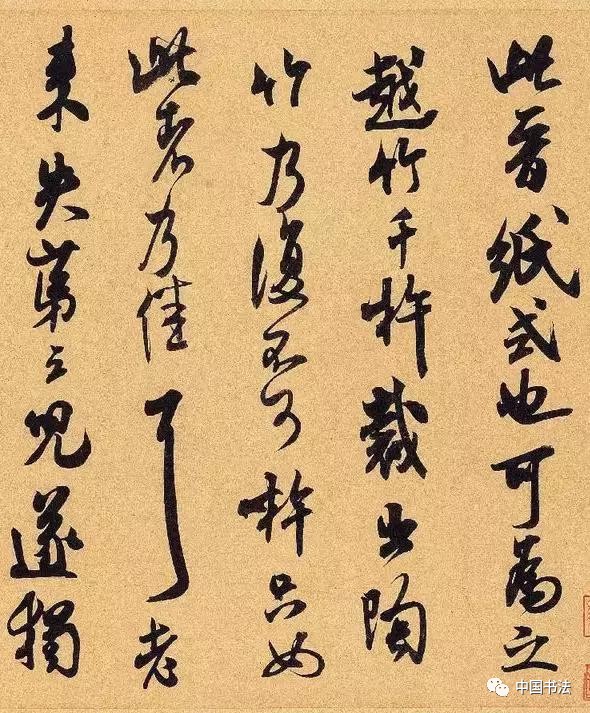 此晉紙式也可為之
越竹千杵裁出陶
竹乃復不可杵只如
此者乃佳耳老
來失第三兒遂獨
中国书法